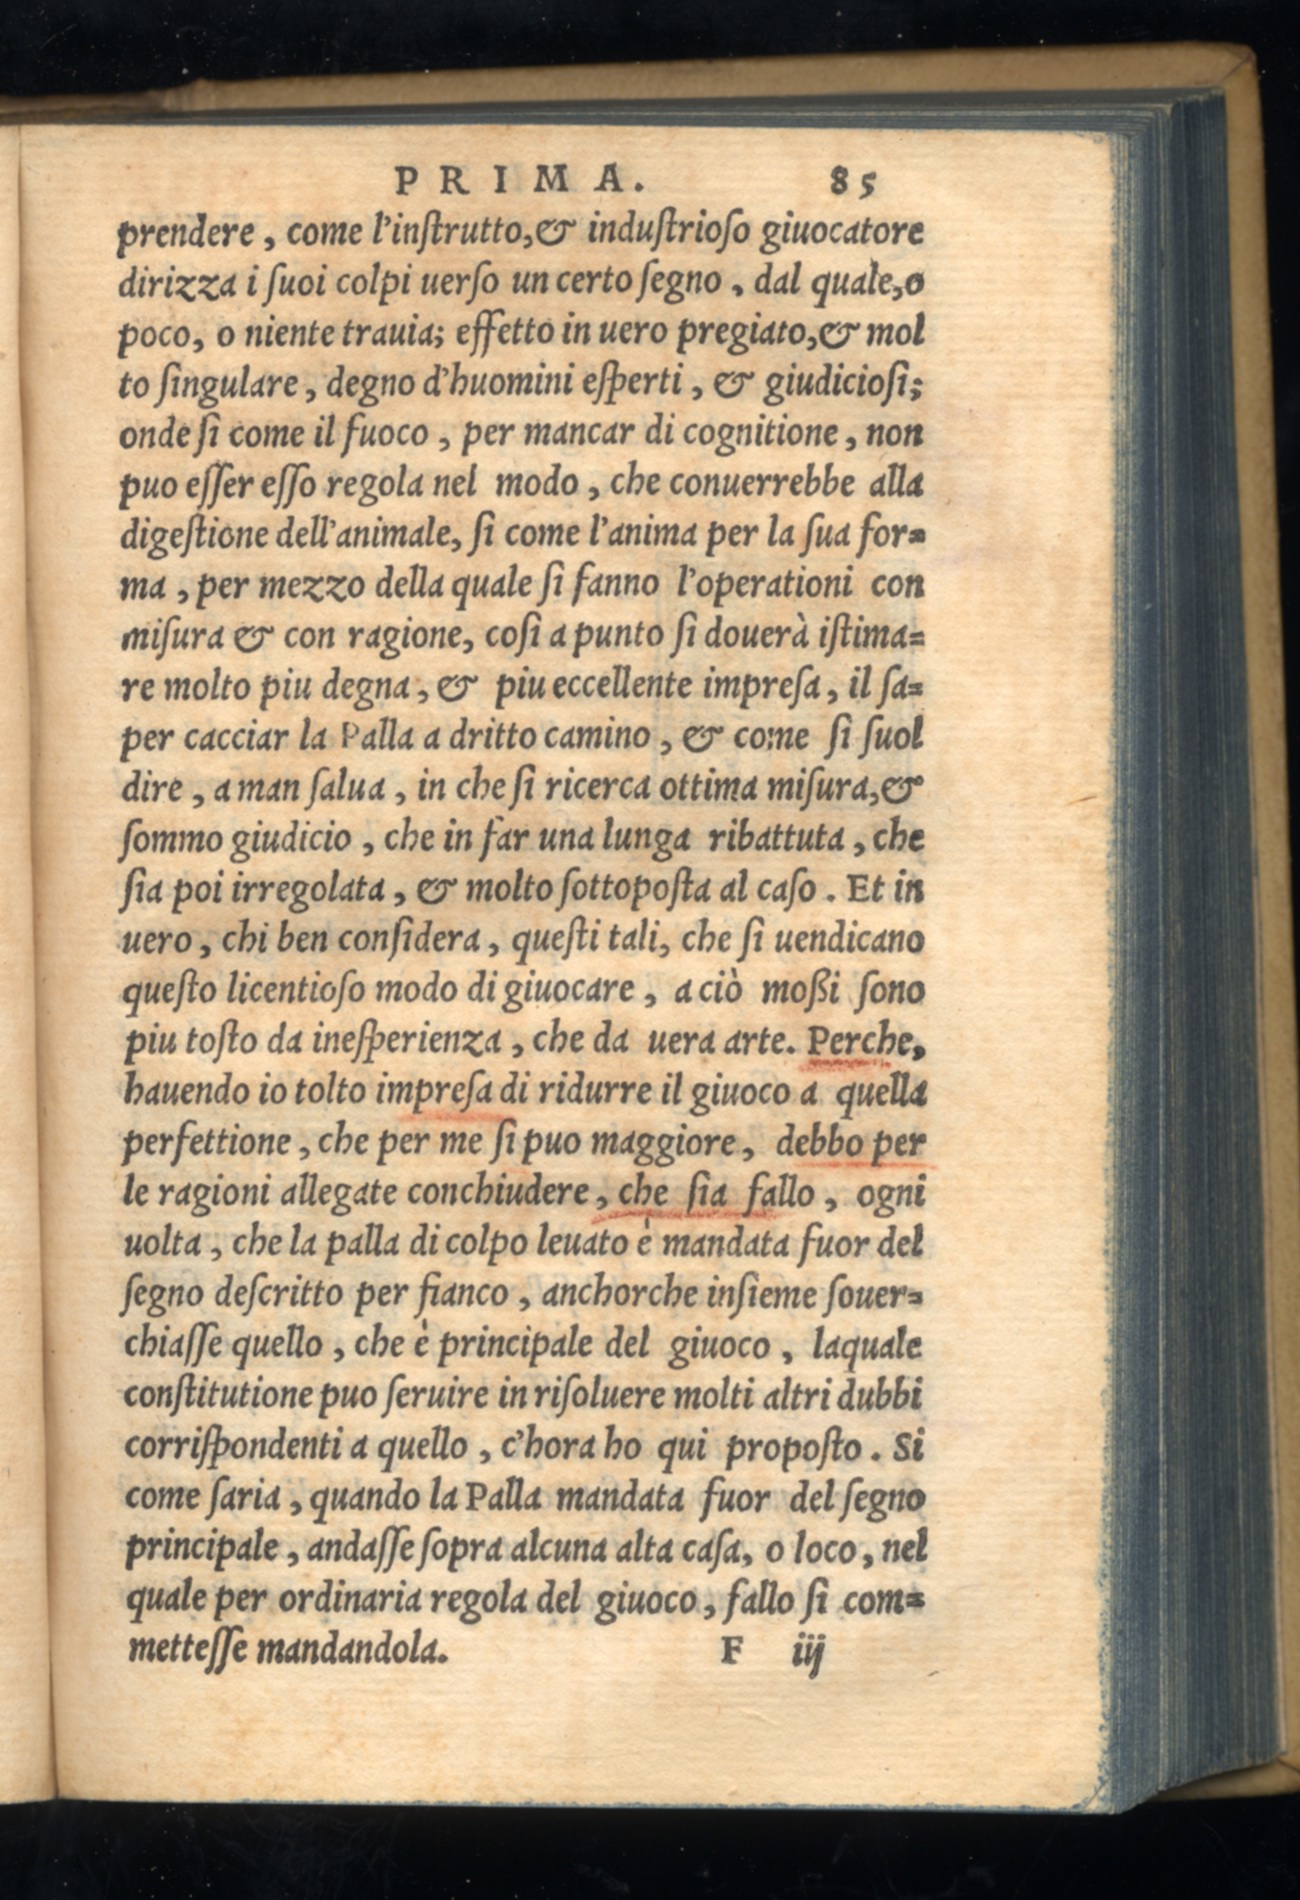 PRIMA. 85
prendere, come l'inſtrutto,& induſtrioſo giuocatore
dirizza i ſuoi colpi uerſo un certo ſegno, dal quale,o
poco, o niente trauia; effetto in uero pregiato,& mol
to ſingulare, degno d'huomini eſperti, & giudicioſi;
onde ſi come il fuoco, per mancar di cognitione, non
puo eſſer eſſo regola nel modo, che conuerrebbe alla
digeſtione dell'animale, ſi come l'anima per la ſua for=
ma, per mezzo della quale ſi fanno l'operationi con
miſura & con ragione, coſi a punto ſi douerà iſtima=
re molto piu degna, & piu eccellente impreſa, il ſa=
per cacciar la Palla a dritto camino, & come ſi ſuol
dire, a man ſalua, in che ſi ricerca ottima miſura,&
ſommo giudicio, che in far una lunga ribattuta, che
ſia poi irregolata, & molto ſottopoſta al caſo. Et in
uero, chi ben conſidera, queſti tali, che ſi uendicano
queſto licentioſo modo di giuocare, a ciò moßi ſono
piu toſto da ineſperienza, che da uera arte. Perche,
hauendo io tolto impreſa di ridurre il giuoco a quella
perfettione, che per me ſi puo maggiore, debbo per
le ragioni allegate conchiudere, che ſia fallo, ogni
uolta, che la palla di colpo leuato è mandata fuor del
ſegno deſcritto per fianco, anchorche inſieme ſouer=
chiaſſe quello, che è principale del giuoco, laquale
conſtitutione puo ſeruire in riſoluere molti altri dubbi
corriſpondenti a quello, c'hora ho qui propoſto. Si
come ſaria, quando la Palla mandata fuor del ſegno
principale, andaſſe ſopra alcuna alta caſa, o loco, nel
quale per ordinaria regola del giuoco, fallo ſi com=
metteſſe mandandola. F iij